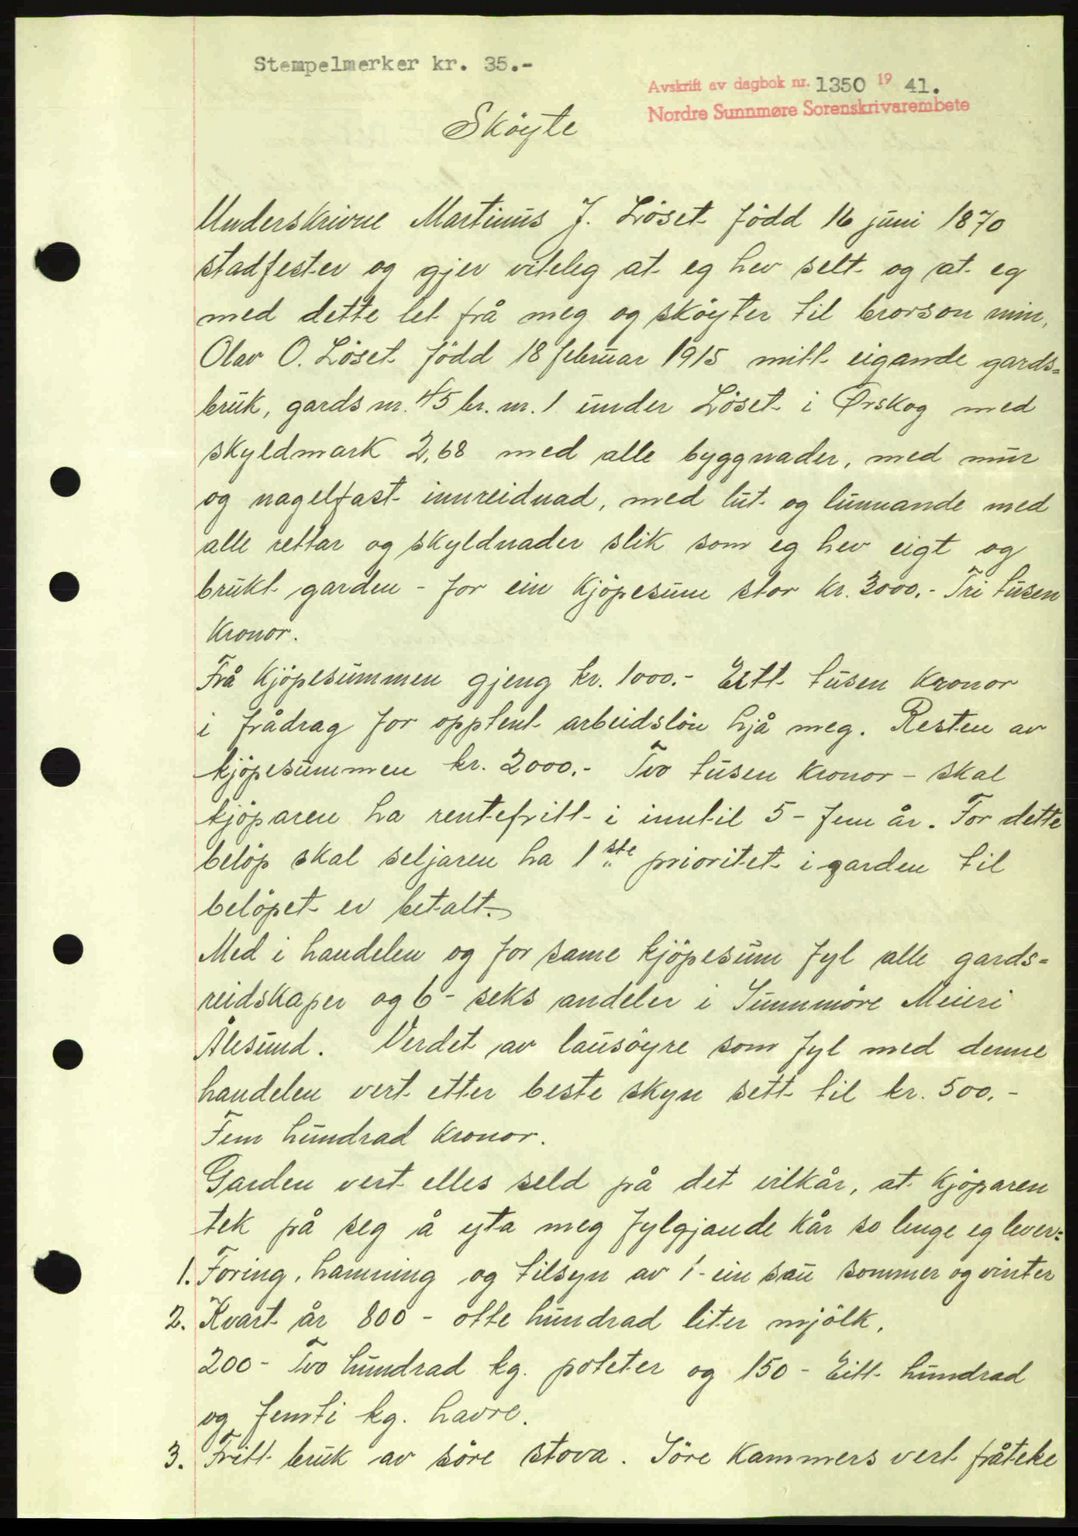 Stempelmerker kr. 35.-
Avskrift av dagbok nr. 1350 19 41.
Nordre Sunnmøre Sorenskrivarembete
Sköyte
Underskrivne Martinus J. Löset född 16 juni 1870
stadfester og gjer viteleg at eg hev selt og at eg
med dette let frå meg og sköyter til brorson min,
Olav O. Löset född 18 februar 1915 mitt eigande gards=
bruk, gards nr. 45 br. nr. 1 under Löset i Ørskog med
skyldmark 2,68 med alle byggnader, med mur
og nagelfast innreidnad, med lut og lunnande med
alle rettar og skyldnader slik som eg hev eigt og
brukt garden - for ein kjöpesum stor kr. 3000.- Tri tusen
kronor.
Frå kjöpesummen gjeng kr. 1000.- Eitt tusen kronor
i frådrag for opptent arbeidslön hjå meg. Resten av
kjöpesummen kr. 2000.- Tvo tusen kronor - skal
kjöparen ha rentefritt i inntil 5 - fem år. For dette
belöp skal seljaren ha 1ste prioritet i garden til
belöpet er betalt.
Med i handelen og for same kjöpesum fyl alle gards=
reidskaper og 6 - seks andeler i Sunnmöre Meieri
Ålesund. Verdet av lausöyre som fyl med denne
handelen vert etter beste skyn sett til kr. 500.-
Fem hundrad kronor.
Garden vert elles seld på det vilkår, at kjöparen
tek på seg å yta meg fylgjande kår so lenge eg lever:
1. Foring, hamning og tilsyn av 1 - ein sau sommer og vinter
2. Kvart år 800 - otte hundrad liter mjölk,
200 - Tvo hundrad kg. poteter og 150 - Eitt hundrad
og femti kg. havre.
3. Fritt bruk av söre stova. Söre kammers vert fråteke